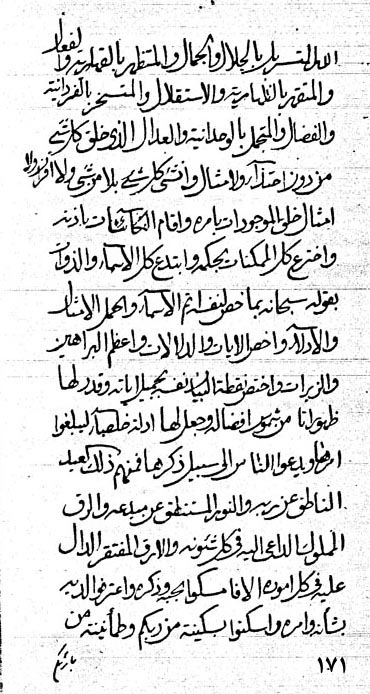 الله المتسربل بالجلال والجمال والمتظهر بالقهارية والفعال
والمتقهر بالقادرية والاستقلال والمتسخر بالفردانية
والفضال والمتجمل بالوحدانية والعدال الذى خلق كل شىء
من دون احتذاء ولا مثال وانشىء كل شىء بلا من شىء ولا اقران ولا
امثال خلق الموجودات بامره واقام الكائنات باذنه
واخترع كل الممكنات بحكمه وابتدع كل الاسماء والذوات
بقوله سبحانه بما خص لنفسه اتم الاسماء واجمل الامثال
والادلاء واخص الايات والدلالات واعظم البراهين
والزبرات واختص نقطة البيا نفسه بجميل اياته وقدر لها
ظهورات من شموس افضاله وجعل لها ادلة خلصاء ليبلغوا
امرها ويدعوا الناس الى سبيل ذكرها فمنهم ذلك العبد
الناطق عن ربه والنور المستنطق عن مبدعه والرق
المملوك الداعى اليه فى كل شئونه والرق المفتقر الدال
عليه فى كل اموره الا فامسكوا بحبه وذكره واعترفوا لديه
بشأنه وامره واسكنوا بسكينة من ربكم وطمأنينة من
١٧١
بارئكم